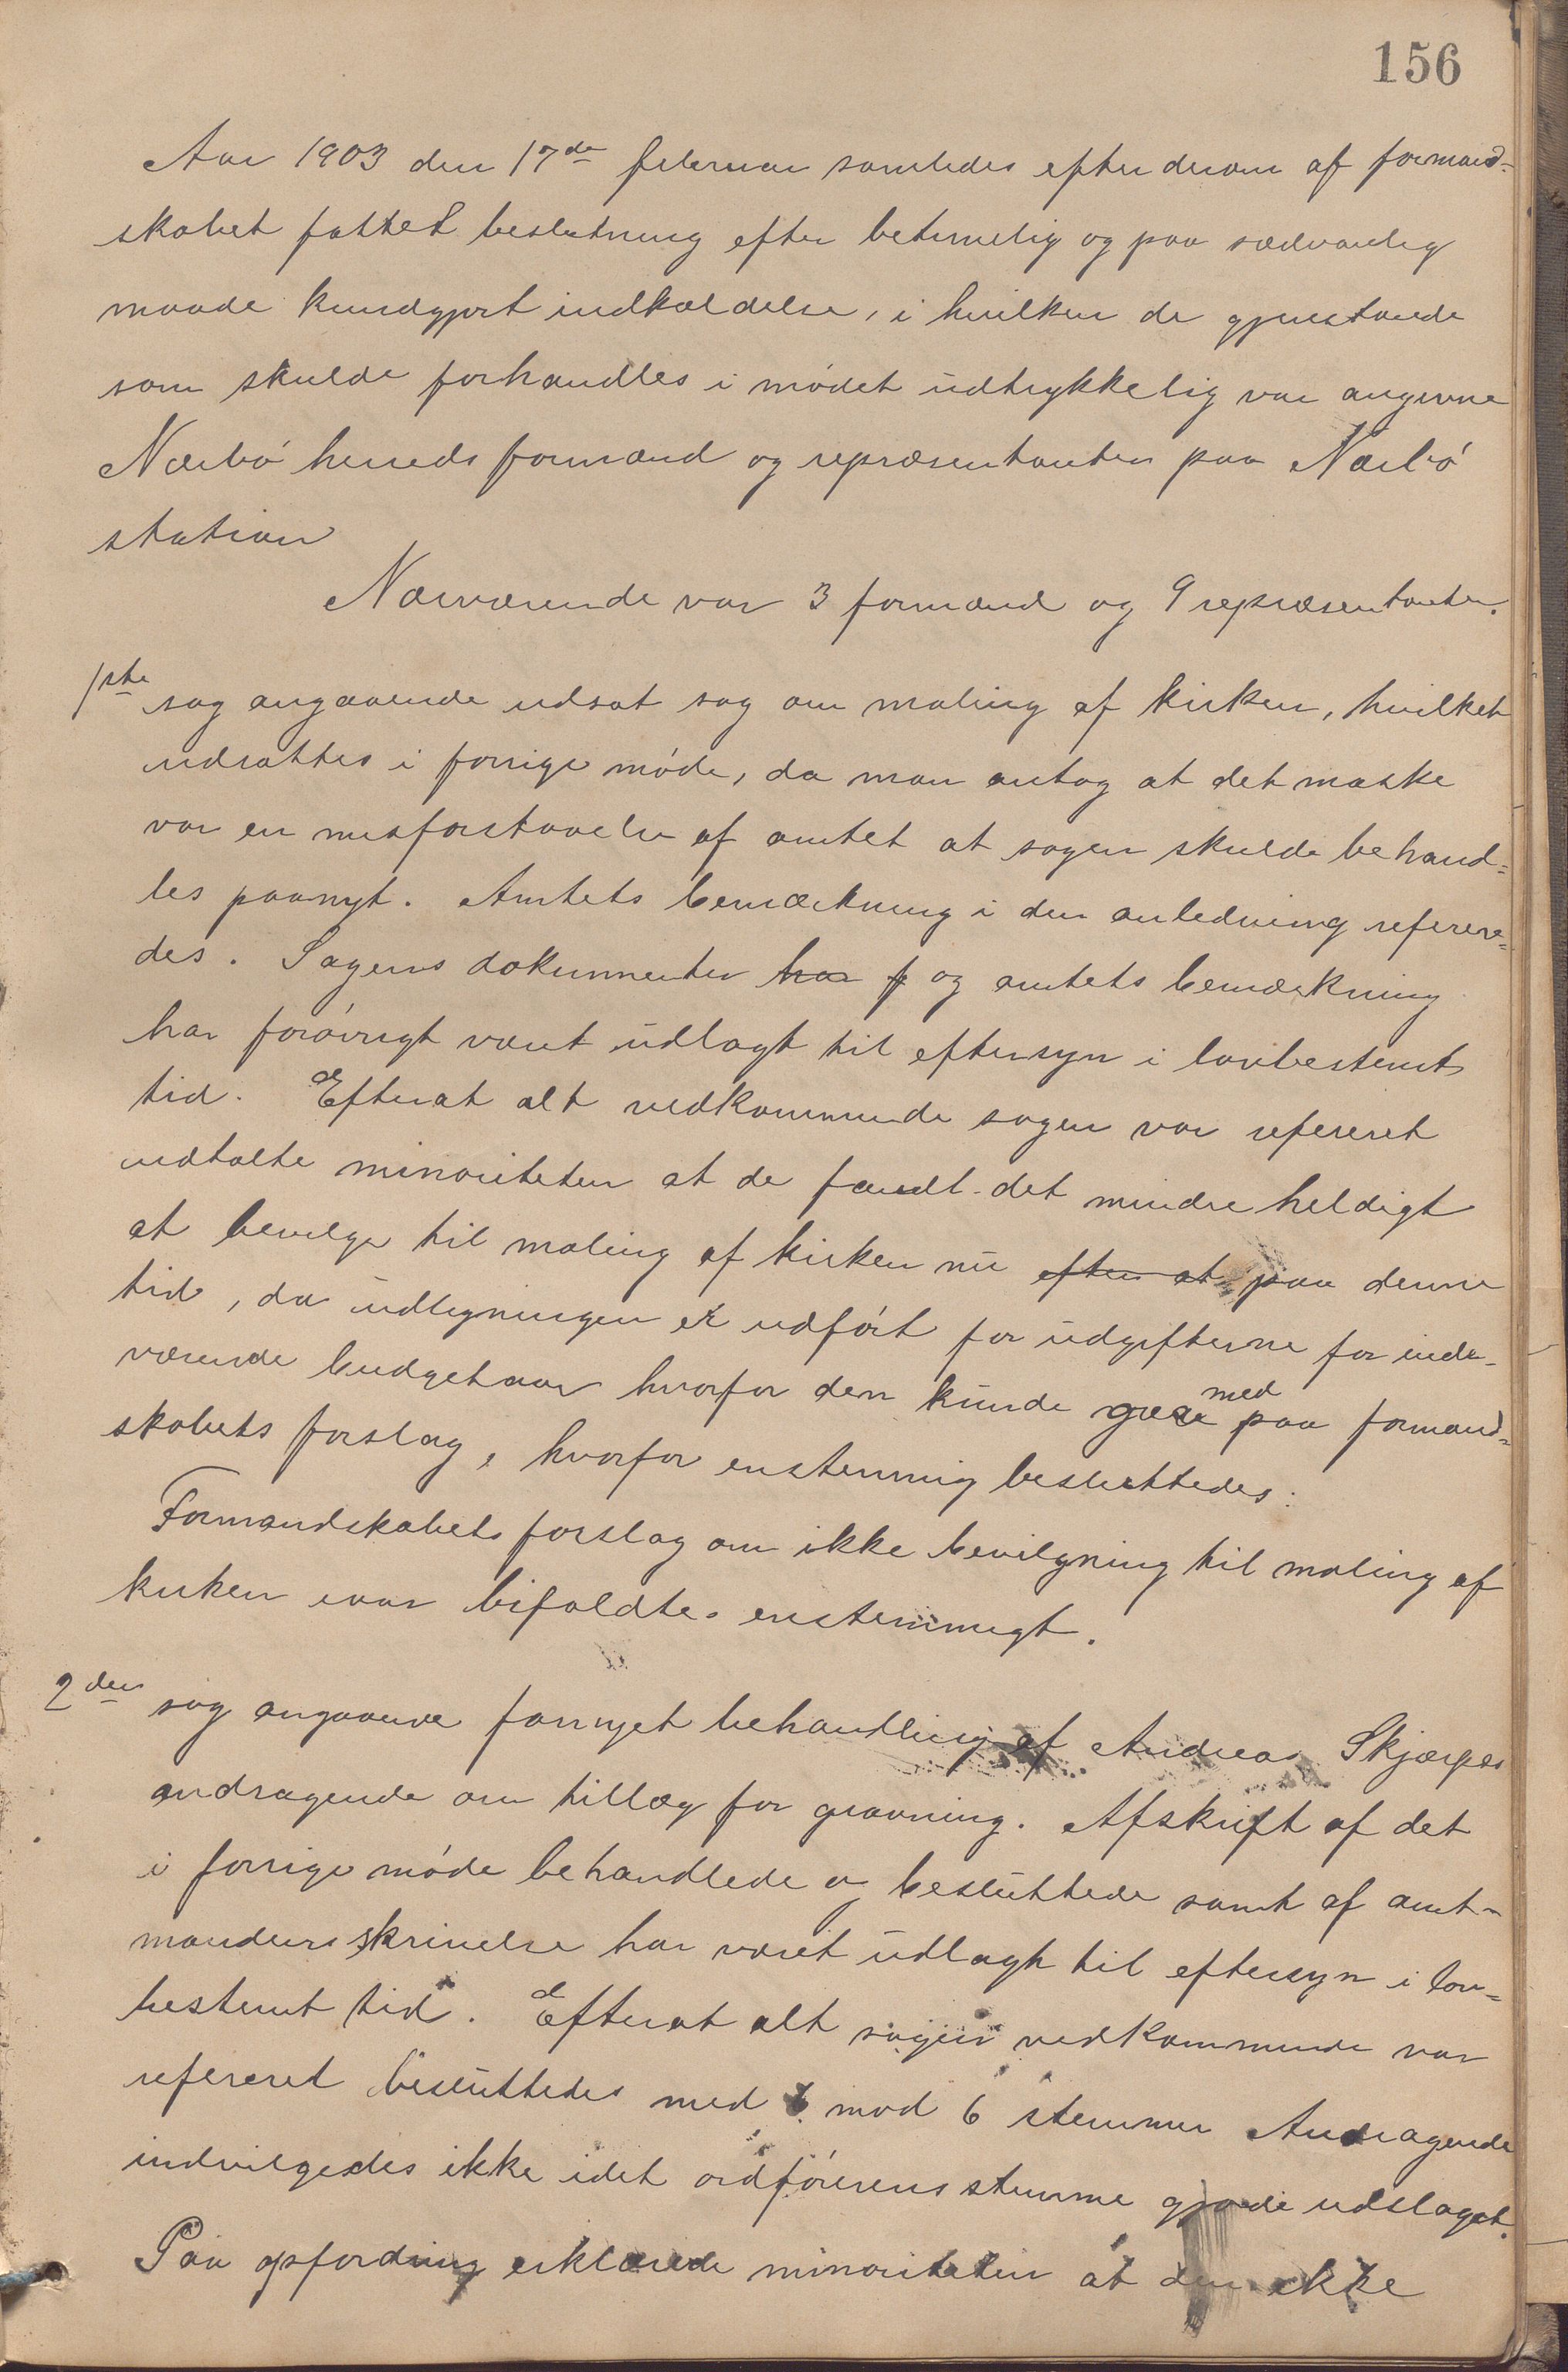 156
Aar 1903 den 17de februar samledes efter derom af formand-
skabet fattet beslutning efter betimelig og paa sædvanlig
maade kundgjort indkaldelse, i hvilken de gjenstande
som skulde forhandles i mødet udtrykkelig var angivne
Nærbø herreds formænd og repræsentanter paa Nærbø
station
Nærværende var 3 formænd og 9 repræsentanter.
1ste sag angaaende udsat sag om maling af kirken, hvilket
udsattes i forrige møde, da man antog at det maske
var en misforstaaelse af amtet at sagen skulde behand=
les paanyt. Amtets bemærkning i den anledning referere=
des. Sagens dokumenter har f og amtets bemærkning
har forøvrigt været udlagt til eftersyn i lovbestemt
tid. Efterat alt vedkommende sagen var refereret
udtalte minoriteten at de fandt det mindre heldigt
at bevilge til maling af kirken nu efter at paa denne
tid, da udligningen er udført for udgifterne for inde-
værende budgetaar hvorfor den kunde gaa med paa formand=
skabets forslag, hvorfor enstemmig besluttedes:
Formandskabets forslag om ikke bevilgning til maling af
kirken iaar bifaldtes enstemmigt.
2den sag angaaende fornyet behandling af Andreas Skjærpes
andragende om tillæg for gravning. Afskrift af det
i forrige møde behandlede og besluttede samt af amt-
mandens skrivelse har været udlagt til eftersyn i lov=
bestemt tid. Efterat alt sagen vedkommende var
refereret besluttedes med 6 mod 6 stemmer Andragende
indvilgedes ikke idet ordførerens stemme gjorde udslaget.
Paa opfordring erklærede minoriteten at den ikke